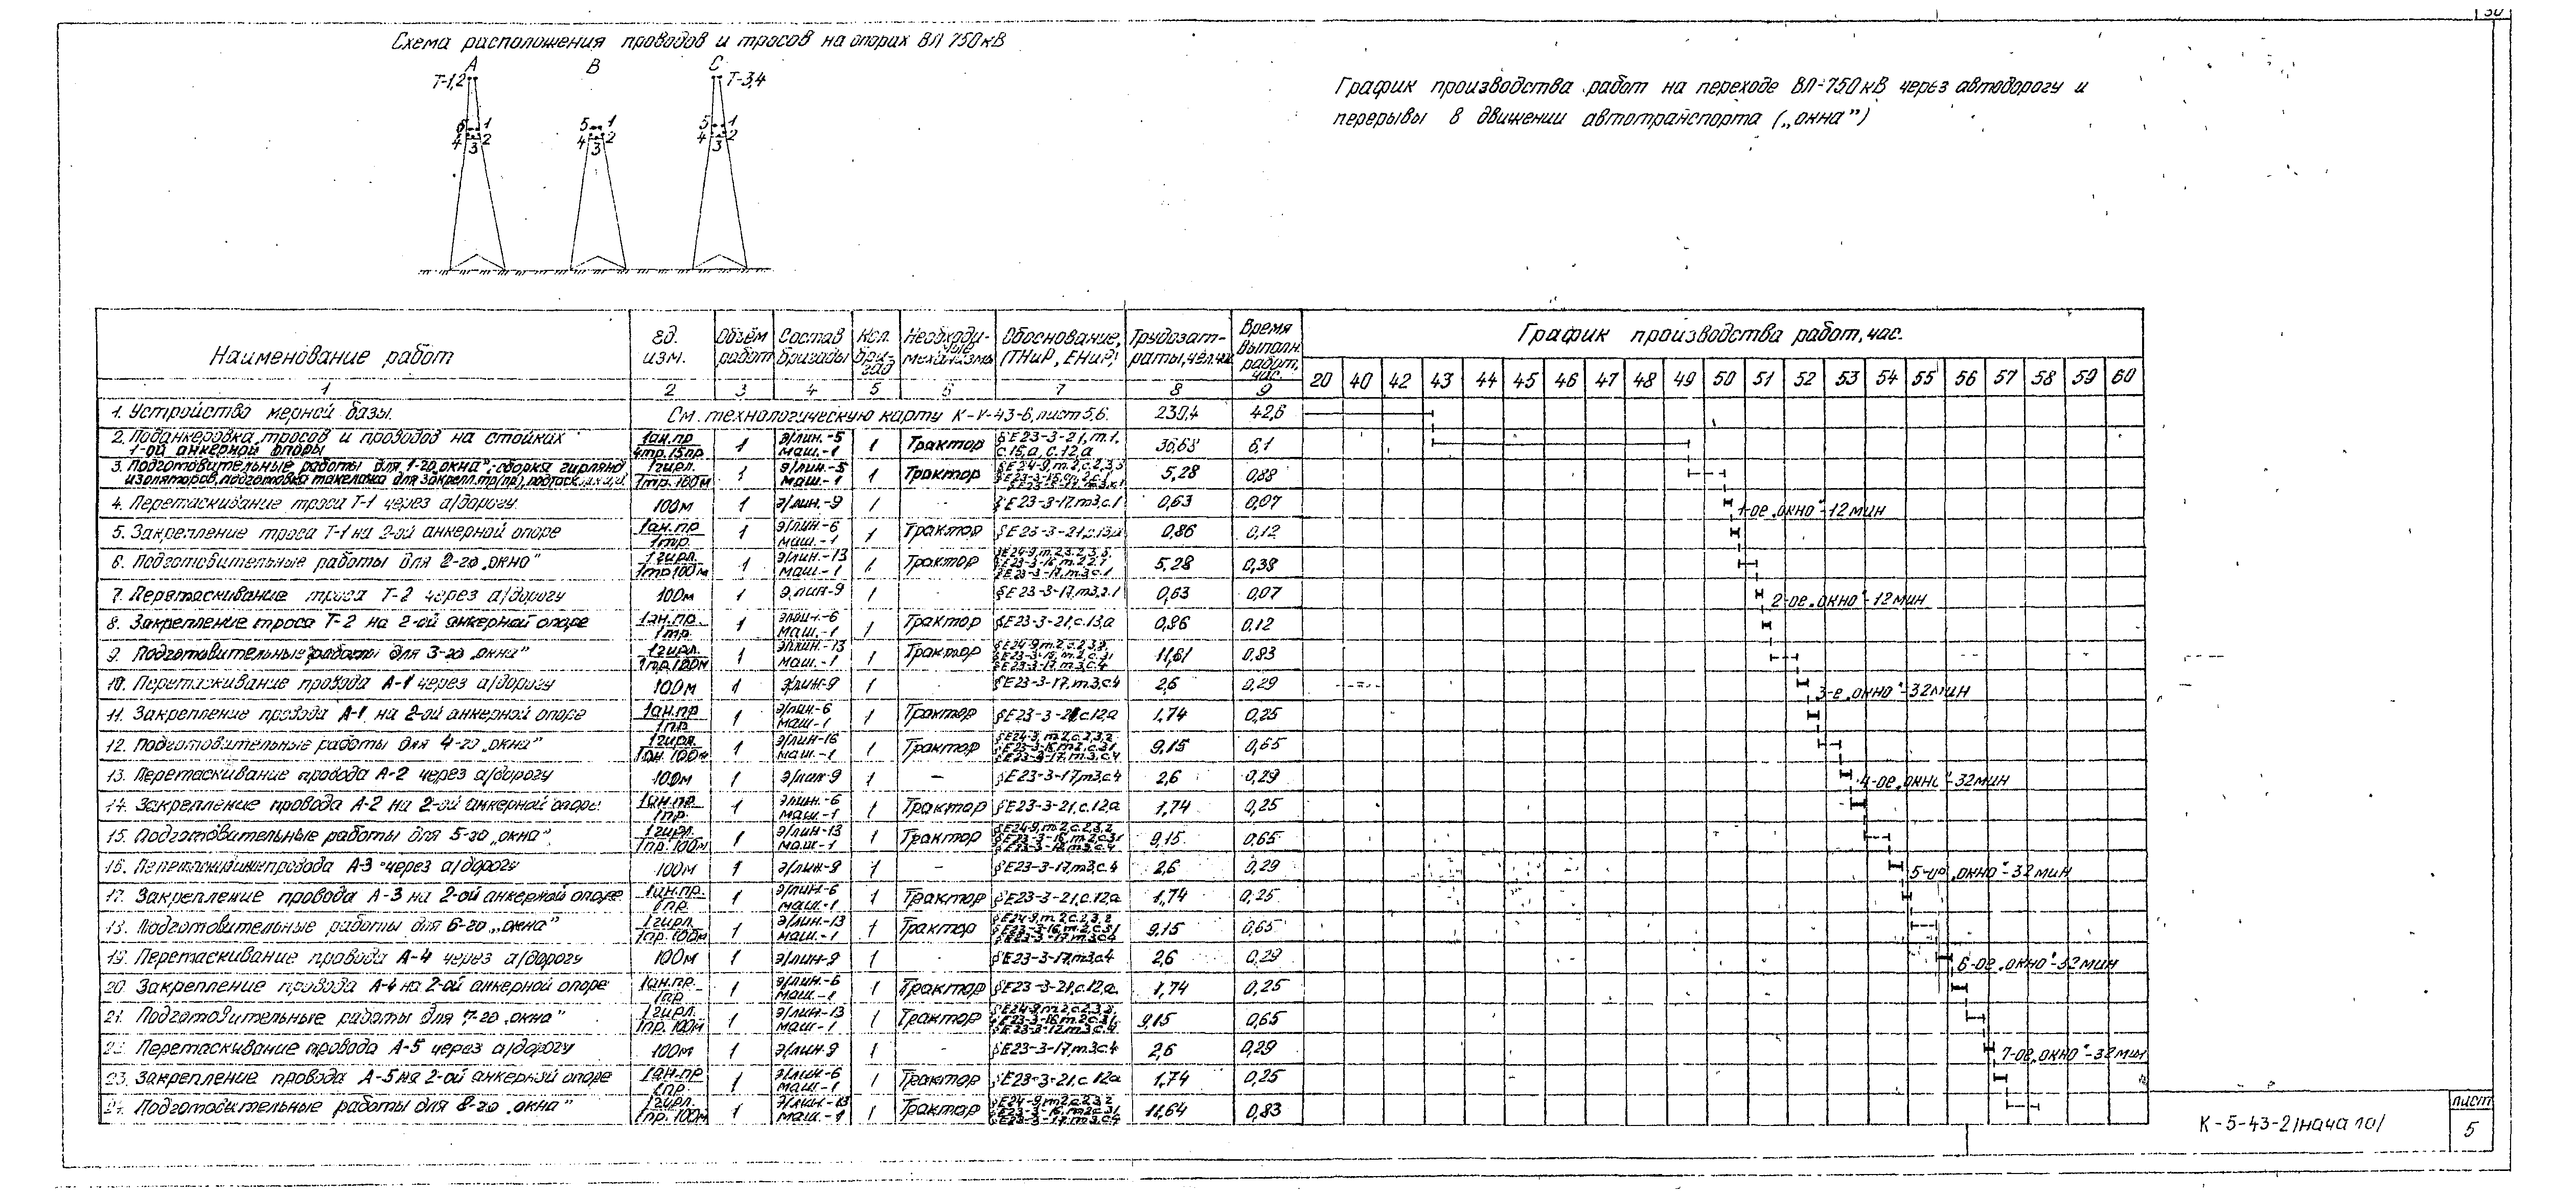 30
Схема расположения проводов и тросов на опорах ВЛ 750кВ
А В С
Т-1,2 Т-3,4
5 1 5 1 5 1
4 2 4 2 4 2
3 3 3
График производства работ на переходе ВЛ-750кВ через автодорогу и
перерывы в движении автотранспорта („окна”)
Наименование работ Ед. изм. Объём работ Состав бригады Кол. бригад Необходимые механизмы Обоснование, (ТНиР, ЕНиР) Трудозатраты, чел.ча Время выполн. работ, час График производства работ, час.
1 2 3 4 5 6 7 8 9 20 40 42 43 44 45 46 47 48 49 50 51 52 53 54 55 56 57 58 59 60
1. Устройство мерной базы. См. технологическую карту К-V-43-6, лист 5,6. 239,4 42,6
2. Поданкеровка тросов и проводов на стойках 1-ой анкерной опоры 1ан.пр 4тр.15пр 1 Э/лин.-5 маш.-1 1 Трактор §Е23-3-21, т.1, с.15,а, с.12,а 36,68 6,1
3. Подготовительные работы для 1-го „окна”: сборка гирлянд изоляторов, подготовка такелажа для закрепл. тр(пр), 1гирл. 1тр.100м 1 Э/лин.-5 маш.-1 1 Трактор 5,28 0,88
4. Перетаскивание троса Т-1 через а/дорогу. 100м 1 Э/лин.-9 1 - §Е23-3-17, т3, с.1 0,63 0,07 1-ое „окно”-12мин
5. Закрепление троса Т-1 на 2-ой анкерной опоре 1ан.пр 1тр. 1 Э/лин-6 маш.-1 1 Трактор §Е23-3-21, с.13,а 0,86 0,12
6. Подготовительные работы для 2-го „окна” 1гирл. 1тр100м 1 Э/лин.-13 маш.-1 1 Трактор 5,28 0,38
7. Перетаскивание троса Т-2 через а/дорогу 100м 1 Э.лин-9 1 - §Е23-3-17, т3, с.1 0,63 0,07 2-ое „окно”-12мин
8. Закрепление троса Т-2 на 2-ой анкерной опоре 1ан.пр. 1тр. 1 Э/лин.-6 маш.-1 1 Трактор §Е23-3-21, с.13,а 0,86 0,12
9. Подготовительные работы для 3-го „окна” 1гирл. 1пр.100м 1 Э/лин.-13 маш.-1 1 Трактор 11,61 0,83
10. Перетаскивание провода А-1 через а/дорогу 100м 1 Э/лин-9 1 - §Е23-3-17, т.3, с4 2,6 0,29 3-е „окно”-32мин
11. Закрепление провода А-1 на 2-ой анкерной опоре 1ан.пр 1пр. 1 Э/лин-6 маш.-1 1 Трактор §Е23-3-21, с.12,а 1,74 0,25
12. Подготовительные работы для 4-го „окна” 1гирл. 100м 1 Э/лин-16 маш.-1 1 Трактор 9,15 0,65
13. Перетаскивание провода А-2 через а/дорогу 100м 1 Э/лин-9 1 - §Е23-3-17, т3, с4 2,6 0,29 4-ое „окно”-32мин
14. Закрепление провода А-2 на 2-ой анкерной опоре 1ан.пр. 1пр. 1 Э/лин.-6 маш.-1 1 Трактор §Е23-3-21, с.12,а 1,74 0,25
15. Подготовительные работы для 5-го „окна” 1гирл. 1пр.100м 1 Э/лин-13 маш-1 1 Трактор 9,15 0,65
16. Перетаскивание провода А-3 через а/дорогу 100м 1 Э/лин-9 1 - §Е23-3-17, т3, с4 2,6 0,29 5-ое „окно”-32мин
17. Закрепление провода А-3 на 2-ой анкерной опоре 1ан.пр. 1пр. 1 Э/лин-6 маш.-1 1 Трактор §Е23-3-21, с.12,а 1,74 0,25
18. Подготовительные работы для 6-го „окна” 1гирл. 1пр.100м 1 Э/лин.-13 маш.-1 1 Трактор 9,15 0,65
19. Перетаскивание провода А-4 через а/дорогу 100м 1 Э/лин-9 1 - §Е23-3-17, т3, с4 2,6 0,29 6-ое „окно”-32мин
20. Закрепление провода А-4 на 2-ой анкерной опоре 1ан.пр. 1пр 1 Э/лин.-6 маш.-1 1 Трактор §Е23-3-21, с.12,а. 1,74 0,25
21. Подготовительные работы для 7-го „окна” 1гирл. 1пр.100м 1 Э/лин-13 маш-1 1 Трактор 9,15 0,65
22. Перетаскивание провода А-5 через а/дорогу 100м 1 Э/лин-9 1 - §Е23-3-17, т3, с.4 2,6 0,29 7-ое „окно”-32мин
23. Закрепление провода А-5 на 2-ой анкерной опоре 1ан.пр 1пр. 1 Э/лин-6 маш.-1 1 Трактор §Е23-3-21, с.12а 1,74 0,25
24. Подготовительные работы для 8-го „окна” 1гирл. 1пр.100м 1 Э/лин-13 маш.-1 1 Трактор 11,64 0,83
К-5-43-2/начало/
лист
5